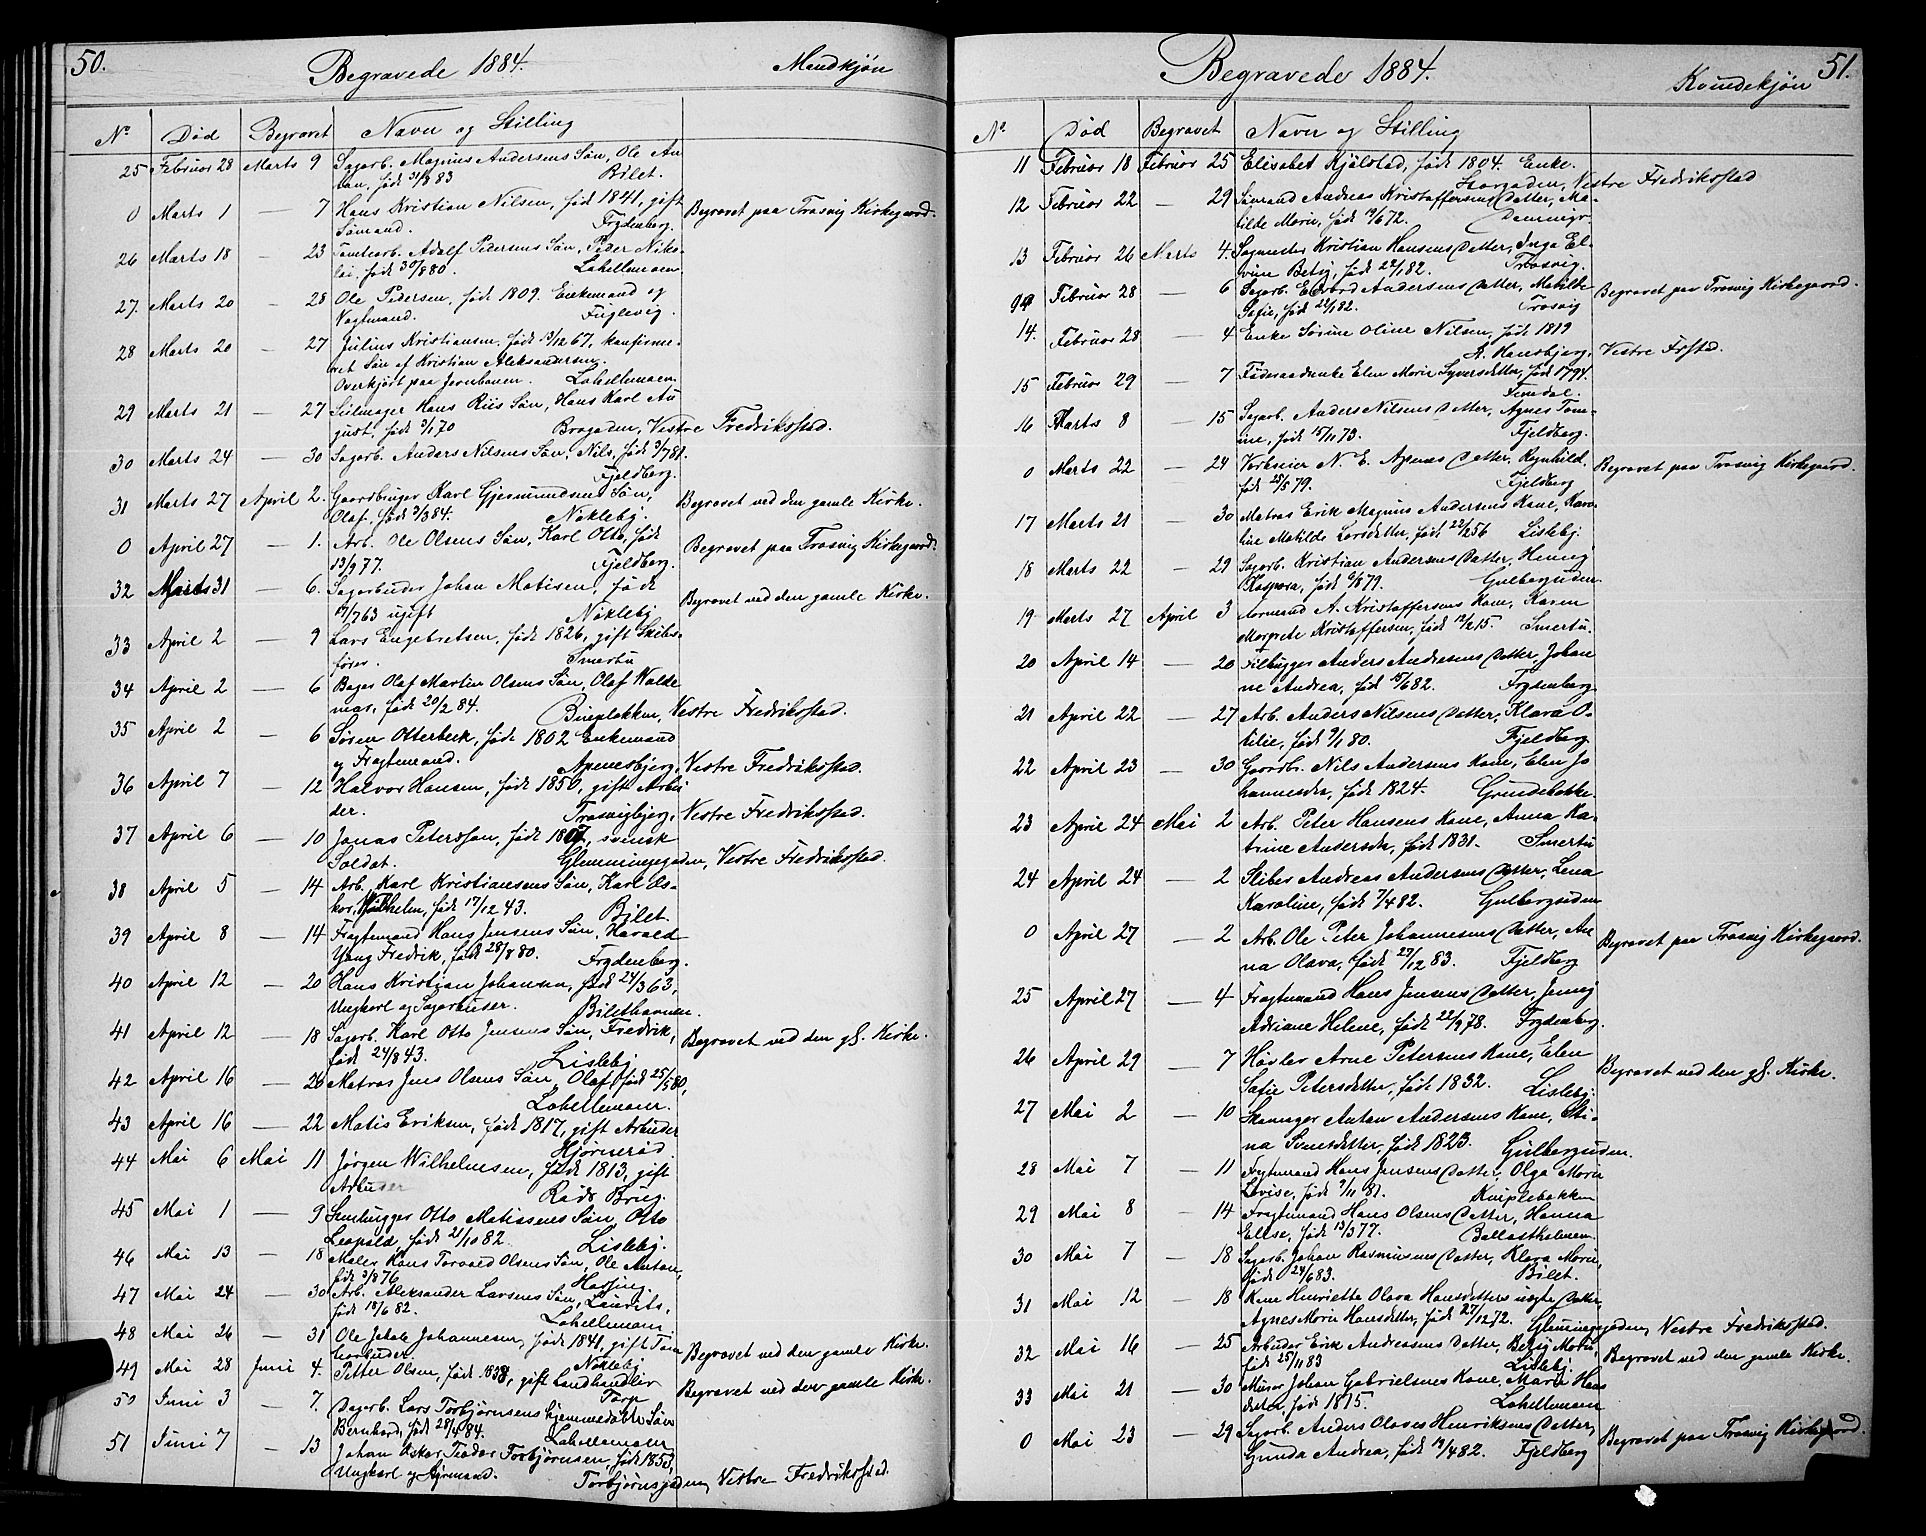 50.
Begravede 1884.
Mandkjøn
No. Død Begravet Navn og Stilling
25 Februar 28 Marts 9 Sagarb. Magnus Andersens Søn, Ole An
ton, født 31/8 83 Bilet.
0 Marts 1 — 7 Hans Kristian Nilsen, født 1841, gift Begravet paa Trosvig Kirkegaard.
Sømand. Frydenberg.
26 Marts 18 — 23 Tomtearb. Adolf Pedersens Søn, Peder Niko-
lai, født 30/8 80. Lahellemoen
27. Marts 20 — 28 Ole Pedersen, født 1809. Enkemand og
Vagtmand. Fuglevig.
28 Marts 20 — 27 Julius Kristiansen, født 13/12 67, konfirme-
ret Søn af Kristian Aleksandersen.
Overkjørt paa Jernbanen. Lahellemoen
29 Marts 21 — 27 Seilmager Hans Riis Søn, Hans Karl Au
gust, født 3/1 70 Brogaden, Vestre Fredriksstad.
30 Marts 24 — 30 Sagarb. Anders Nilsens Søn, Nils, født 3/7 81.
Fjeldberg.
31 Marts 27 April 2. Gaardbruger Karl Gjesmundsens Søn, Begravet ved den gamle Kirke.
Olaf, født 3/3 84. Nøkleby.
0 April 27 — 1. Arb. Ole Olsens Søn, Karl Otto, født Begravet paa Trosvig Kirkegaard.
13/9 77. Fjeldberg.
32 Marts 31 — 6. Sagarbeider Johan Matisen, født Begravet ved den gamle Kirke.
17/7 63 ugift Nøkleby
33 April 2 — 9 Lars Engebretsen, født 1826, gift Skibs-
fører. Smertu
34 April 2 — 6 Bager Olaf Martin Olsens Søn, Olaf Walde
mar, født 20/2 84. Vestre Fredriksstad.
35 April 2 — 6 Søren Otterbeck, født 1802 Enkemand
og Fragtemand. Apenesbjerg, Vestre Fredriksstad.
36 April 7 — 12 Halvor Hansen, født 1850, gift Arbei
der. Trosvigbjerg, Vestre Fredriksstad.
37 April 6 — 10 Jonas Petersson, født svensk
Soldat. Glemmingegaden, Vestre Fredriksstad.
38 April 5 — 14 Arb. Karl Kristiansens Søn, Karl Os-
kar Vilhelm, født 17/12 43. Bilet.
39 April 8 — 14 Fragtemand Hans Jensens Søn, Harald
Yong Fredrik, født 28/8 80. Frydenberg.
40 April 12 — 20 Hans Kristian Johansen, født 24/3 63,
Ungkarl og Sagarbeider. Bilethavnen.
41 April 12 — 18 Sagarb. Karl Otto Jensens Søn, Fredrik, Begravet ved den gl. Kirke.
født 24/8 43. Lisleby
42 April 16 — 26 Matros Jens Olsens Søn, Olaf, født 25/5 80,
Lahellemoen.
43 April 16 — 22 Matis Eriksen, født 1817, gift Arbeider
Hjørnerød
44 Mai 6 Mai 11 Jørgen Wilhelmsen, født 1813, gift
Arbeider Røds Brug.
45 Mai 1 — 9 Otto Matissens Søn, Otto
Leopold, født 21/10 82. Lisleby.
46 Mai 13 — 18 Maler Hans Torvald Olsens Søn, Ole Anton,
født 3/8 76
47 Mai 24 — 30 Arb. Aleksander Larsens Søn, Laurits,
født 18/6 82. Lahellemoen
48 Mai 26 — 31 Ole Jakob Johannesen, født 1841, gift Tøm
Nøkleby Begravet ved den gamle Kirke.
49 Mai 28 Juni 4. Petter Olsen, født 1838, gift Landhandler
Torp Begravet ved den gamle Kirke.
50 Juni 3 — 7. Dagarb. Lars Torbjørnsens hjemmedøbte Søn
Bernhard, født 28/4 84. Lahellemoen
51 Juni 7 — 13 Johan Oskar Teodor Torbjørnsen, født 1853,
Ungkarl og Torbjørnsgaden, Vestre Fredriksstad.
51.
Begravede 1884.
Kvindekjøn
No. Død Begravet Navn og Stilling
11 Februar 18 Februar 25 Elisabet Kjølstad, født 1804. Enke.
Storgaden, Vestre Fredriksstad
12 Februar 22 — 29 Sømand Andreas Kristoffersens Datter, Ma-
tilde Marie, født 19/6 72.
13 Februar 26 Marts 4. Sagmester Kristian Hansens Datter, Inga El-
vine Betsy, født 22/1 82. Trosvig.
Februar 28 — 6 Sagarb. Edvard Andersens Datter, Matilde Begravet paa Trosvig Kirkegaard.
Sofie, født 21/1 82. Trosvig
14. Februar 28 — 4 Enke Sørine Oline Nilsen, født 1819
R. Hansbjerg, Vestre Frstad.
15 Februar 29 — 7 Føderaadsenke Elen Marie Syversdatter, født 1794.
16 Marts 8 — 15 Sagarb. Anders Nilsens Datter, Agnes Tom-
ine, født 15/11 73. Fjeldberg.
0 Marts 22 — 24 Verkseier N. E. Apenæs Datter, Ragnhild. Begravet paa Trosvig Kirkegaard.
født 28/5 79. Fjeldberg
17 Marts 21 — 30 Matros Erik Magnus Andersens Kone, Karo-
line Matilde Larsdatter, født 22/2 56 Lisleby.
18 Marts 22 — 29 Sagarb. Kristian Andersens Datter, Henny
Kaspara, født 6/8 79. Gulbergsiden
19 Marts 27 April 3 A. Kristoffersens Kone, Karen
Margrete Kristoffersen, født 12/2 15. Smertu.
20 April 14 — 20 Filhugger Anders Andresens Datter, Johan
ne Andrea, født 15/6 82. Frydenberg
21 April 22 — 27 Arb. Anders Nilsens Datter, Klara O-
tilie, født 9/1 80. Fjeldberg
22 April 23 — 30 Gaardbr. Nils Andersens Kone, Elen Jo
hannesdtr, født 1824. Grundebakke.
23 April 24 Mai 2 Arb. Peter Hansens Kone, Anna Ka-
trine Andersdtr, født 1831. Smertu
24 April 24 — 2 Sliber Andreas Andersens Datter, Lena
Karoline, født 7/4 82. Gulbergsiden
0 April 27 — 2 Arb. Ole Peter Johannesens Datter, An Begravet paa Trosvig Kirkegaard.
na Olava, født 27/12 83. Fjeldberg
25 April 27 — 4 Fragtemand Hans Jensens Datter, Jenny
Adriane Helene, født 22/9 78. Frydenberg.
26 April 29 — 7 Høvler Arne Petersens Kone, Elen Begravet ved den gl. Kirke.
Sofie Petersdatter, født 1832. Lisleby.
27 Mai 2 — 10 Skomager Anton Andersens Kone, Sti-
na Svensdatter, født 1823. Gulbergsiden.
28 Mai 7 — 11 Fragtemand Hans Jensens Datter, Olga Marie
Lovise, født 9/11 81. Kniplebakken
29 Mai 8 — 14 Fragtemand Hans Olsens Datter, Hanna
Elise, født 13/3 77. Ballastholmen.
30 Mai 7 — 18 Sagarb. Johan Rasmusens Datter, Klara Marie,
født 24/6 83. Bilet.
31 Mai 12 — 18 Pine Henriette Olava Hansdatters uægte Datter,
Agnes Marie Hansdatter, født 27/12 72. Glemmingegaden, Vestre Fredriksstad.
32 Mai 16 — 25 Arbeider Erik Andreasens Datter, Betsy Marie,
født 25/11 83 Lisleby. Begravet ved den gamle Kirke.
33 Mai 21 — 30 Murer Johan Gabrielsens Kone, Maria Hans
datter, født 1815. Lahellemoen
0 Mai 23 — 29 Sagarb. Anders Olaves Henriksens Datter, Begravet paa Trosvig Kirkegaard.
Gunda Andrea, født 19/4 82. Fjeldberg